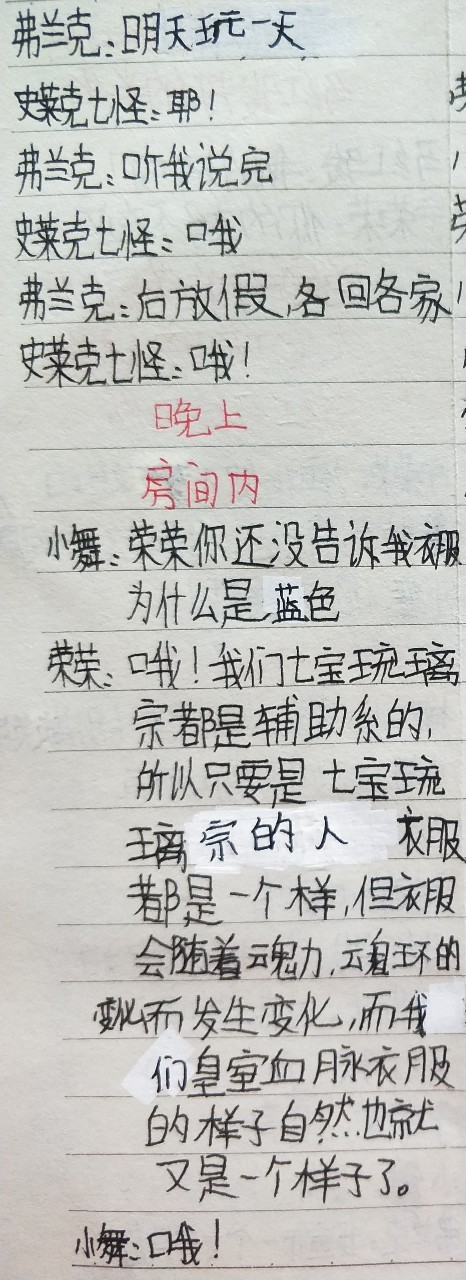 弗兰克：明天玩一天
史莱克七怪：耶！
弗兰克：听我说完
史莱克七怪：哦
弗兰克：后放假，各回各家
史莱克七怪：哦！
晚上
房间内
小舞：荣荣你还没告诉我衣服
为什么是蓝色
荣荣：哦！我们七宝琉璃
宗都是辅助系的，
所以只要是七宝琉
璃宗的人 衣服
都是一个样，但衣服
会随着魂力，魂环的
变化而发生变化，而我
们皇室血脉衣服
的样子自然也就
又是一个样子了。
小舞：哦！